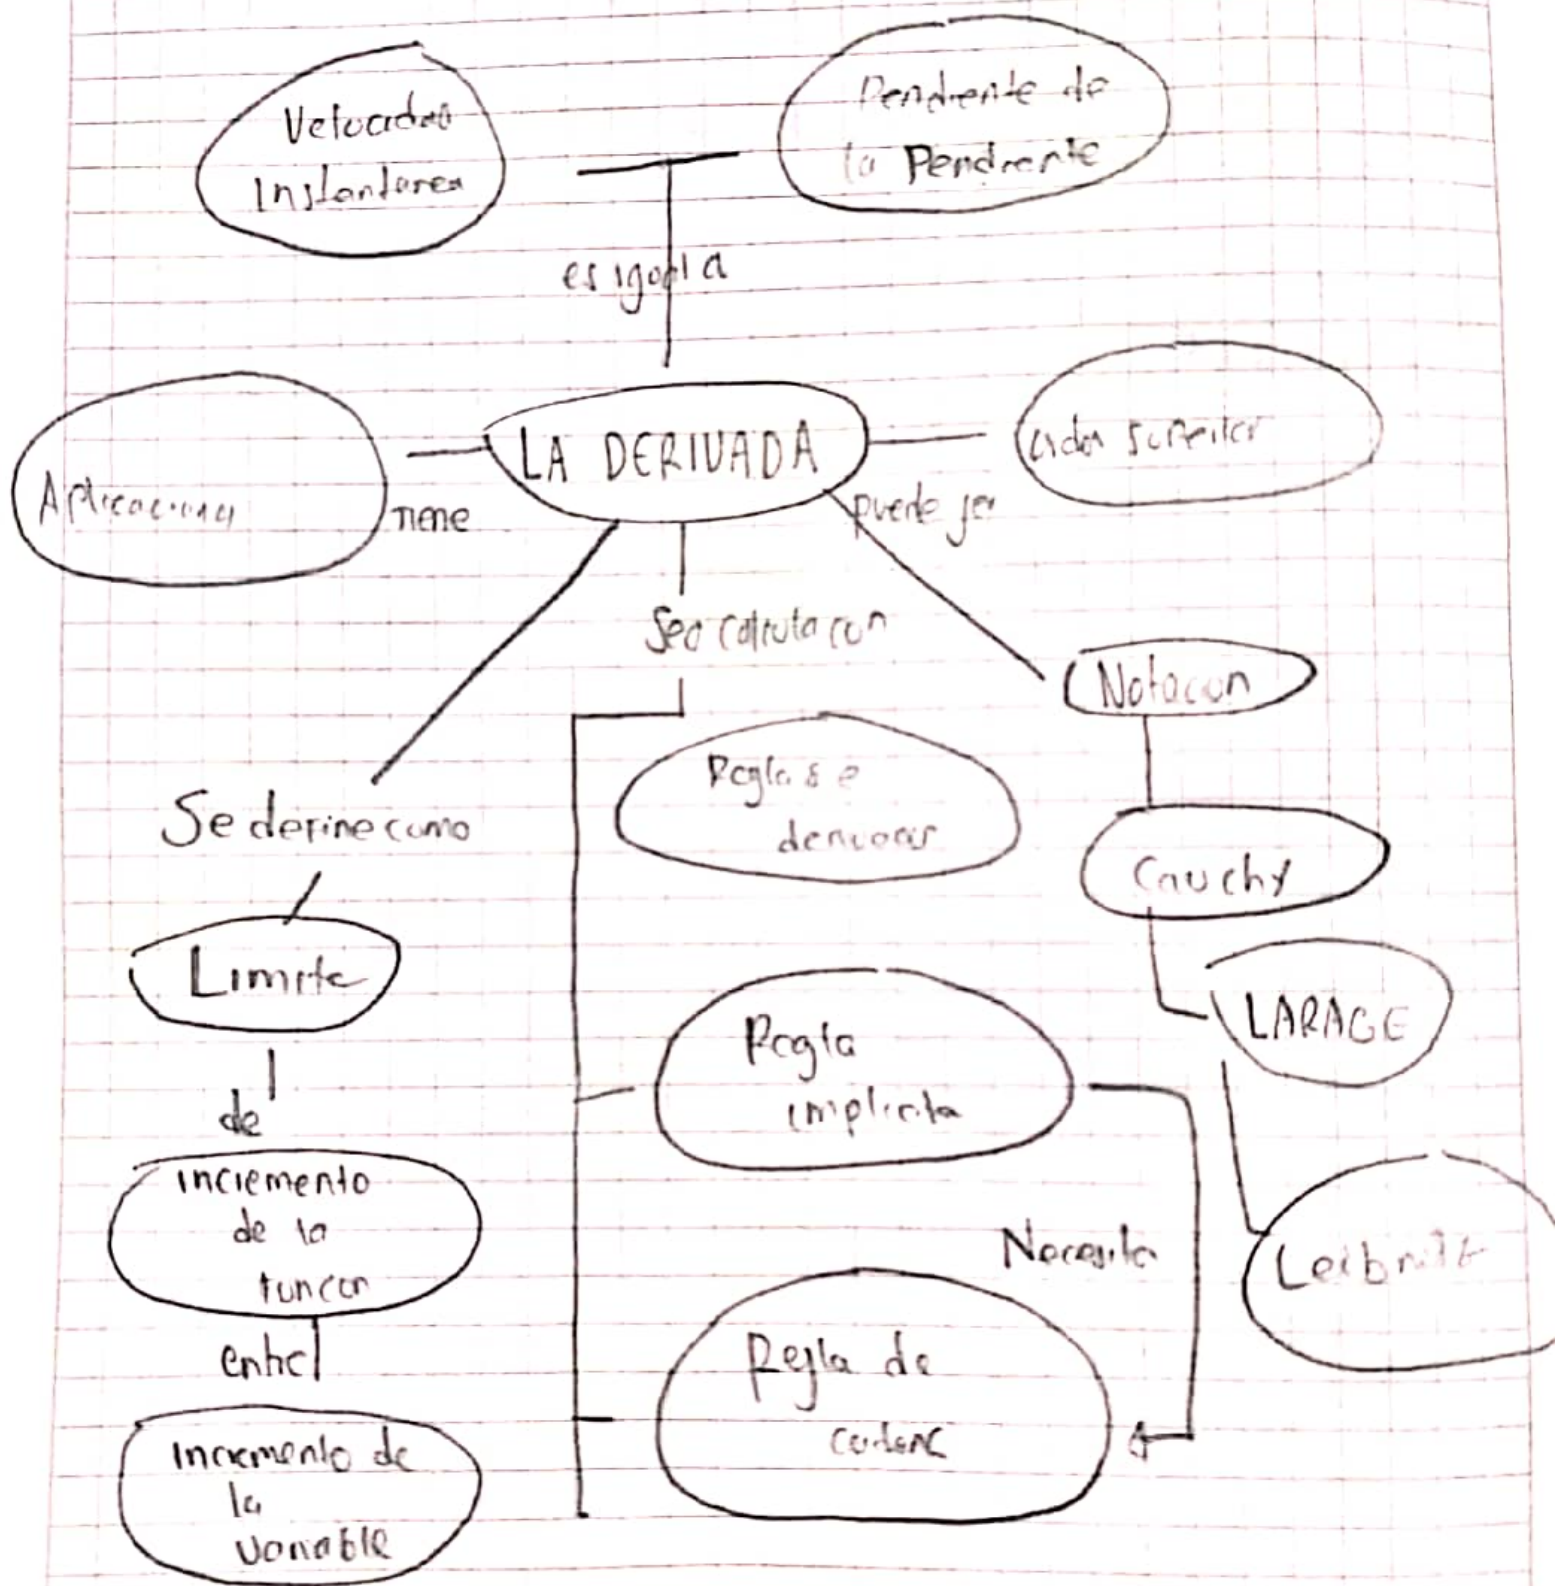 Velocidad
Instantanea
Pendiente de
la Pendiente
es igual a
LA DERIVADA
Aplicaciones
Tiene
orden superior
puede ser
Sea calcula con
Notacon
Reglas e
Se define como
Cauchy
Limite
LARAGE
Regla
implicita
de
incremento
de la
funcon
Necesita
Leibnitz
entre
Regla de
incremento de
la
variable